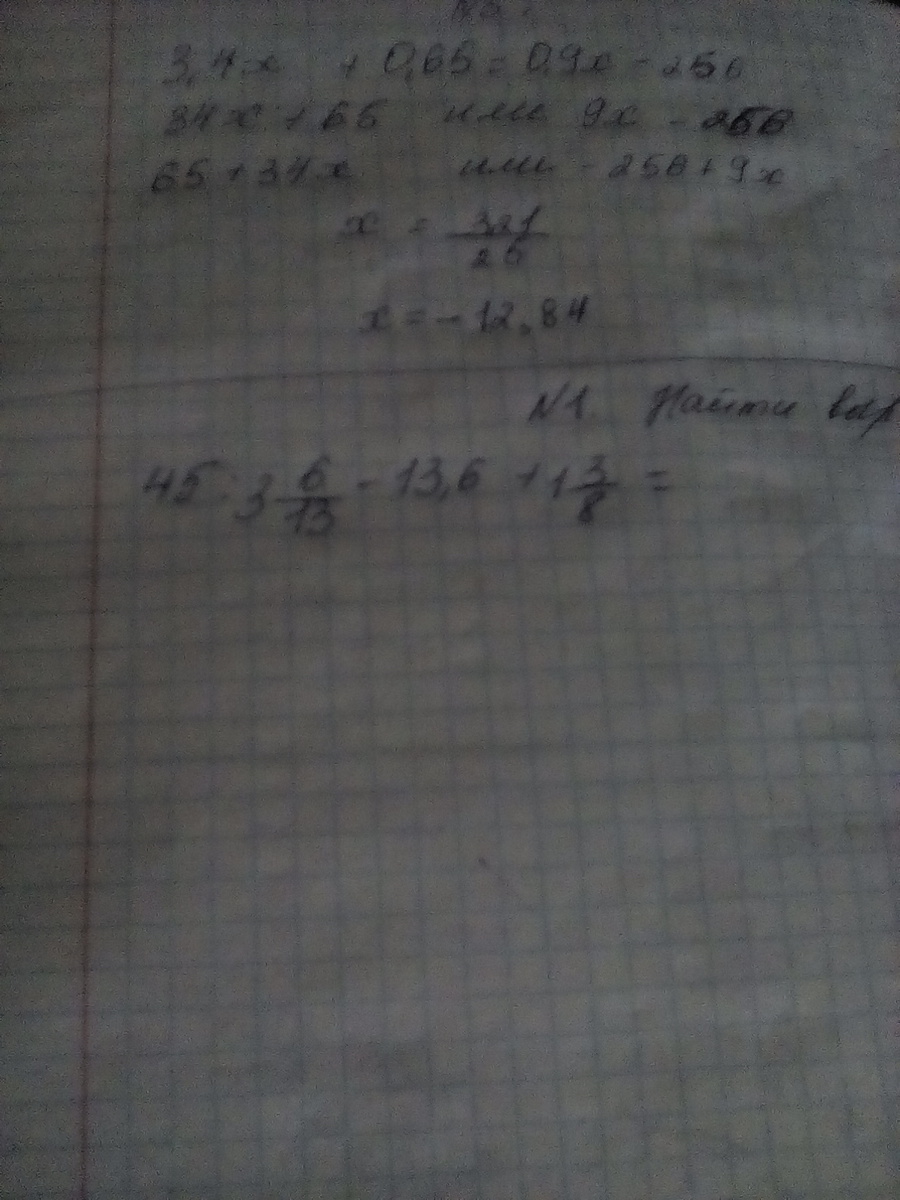 3,4x + 0,65 = 0,9x - 256
34x + 65 или 9x - 256
65 + 34x или - 256 + 9x
x = 321/25
x = - 12,84
N1 Найти
45 : 3 6/13 - 13,6 + 1 3/8 =